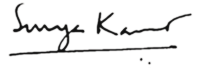 Surya Kant